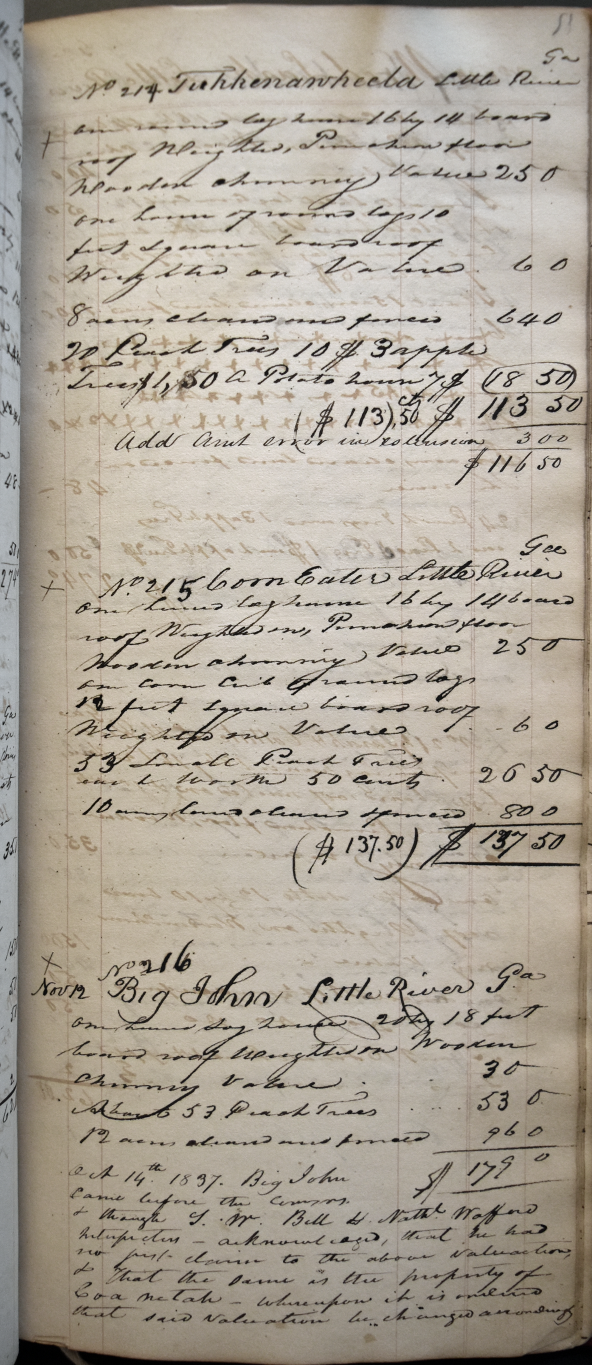 51
Ga
No 214 Tukkenawheela Little River
+ one round log house 16 by 14 board
roof Weighted, Puncheon floor
Wooden chimney, Value 25 0
one house of round logs 10
feet square board roof
Weighted on Value 6 0
8 acres cleared and fenced 64 0
20 Peach Trees 10 $ 3 apple
Trees $1,50 A Potato house 7 $ (18 50)
($ 113) 50 cts $ 113 50
Add Amt error in extension 3 00
$ 116 50
Ga
+ No 215 Corn Eater Little River
one hewed log house 16 by 14 board
roof Weighted on, Puncheon floor
Wooden chimney Value 25 0
one corn crib of round logs
12 feet square board roof
Weighted on Value 6 0
53 Small Peach Trees
each worth 50 cents 26 50
10 acres land cleared & fenced 80 0
($ 137.50) $ 137 50
+ No 216
Nov 12 Big John Little River Ga
one hewed log house 20 by 18 feet
board roof Weighted on Wooden
Chimney Value 30
53 Peach Trees 53 0
12 acres cleared and fenced 96 0
Oct 14th 1837. Big John $ 179 0
Came before the Commrs.
& through S. W. Bell & Nathl Wofford
Interpreters - acknowledged, that he had
no just claim to the above valuation,
& that the same is the property of
Coa netah - whereupon it is ordered
that said valuation be changed accordingly